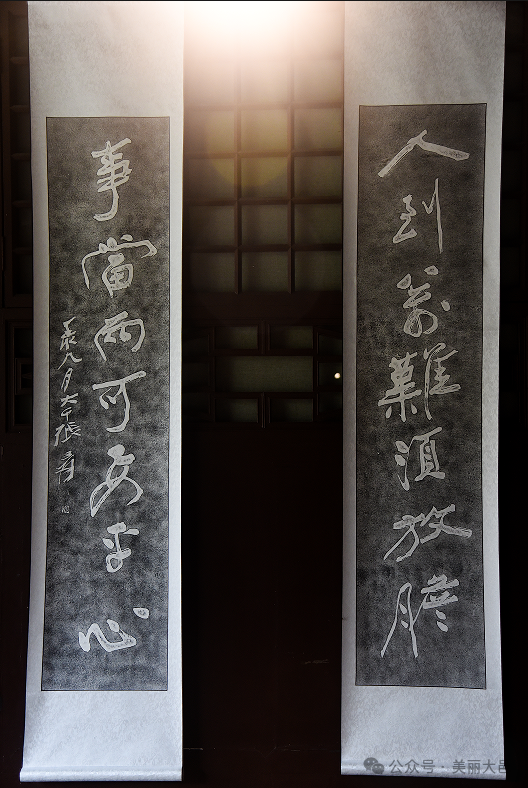 人到萬難須放膽
事當兩可要平心
丁亥八月大千張爰
公众号 · 美丽大邑